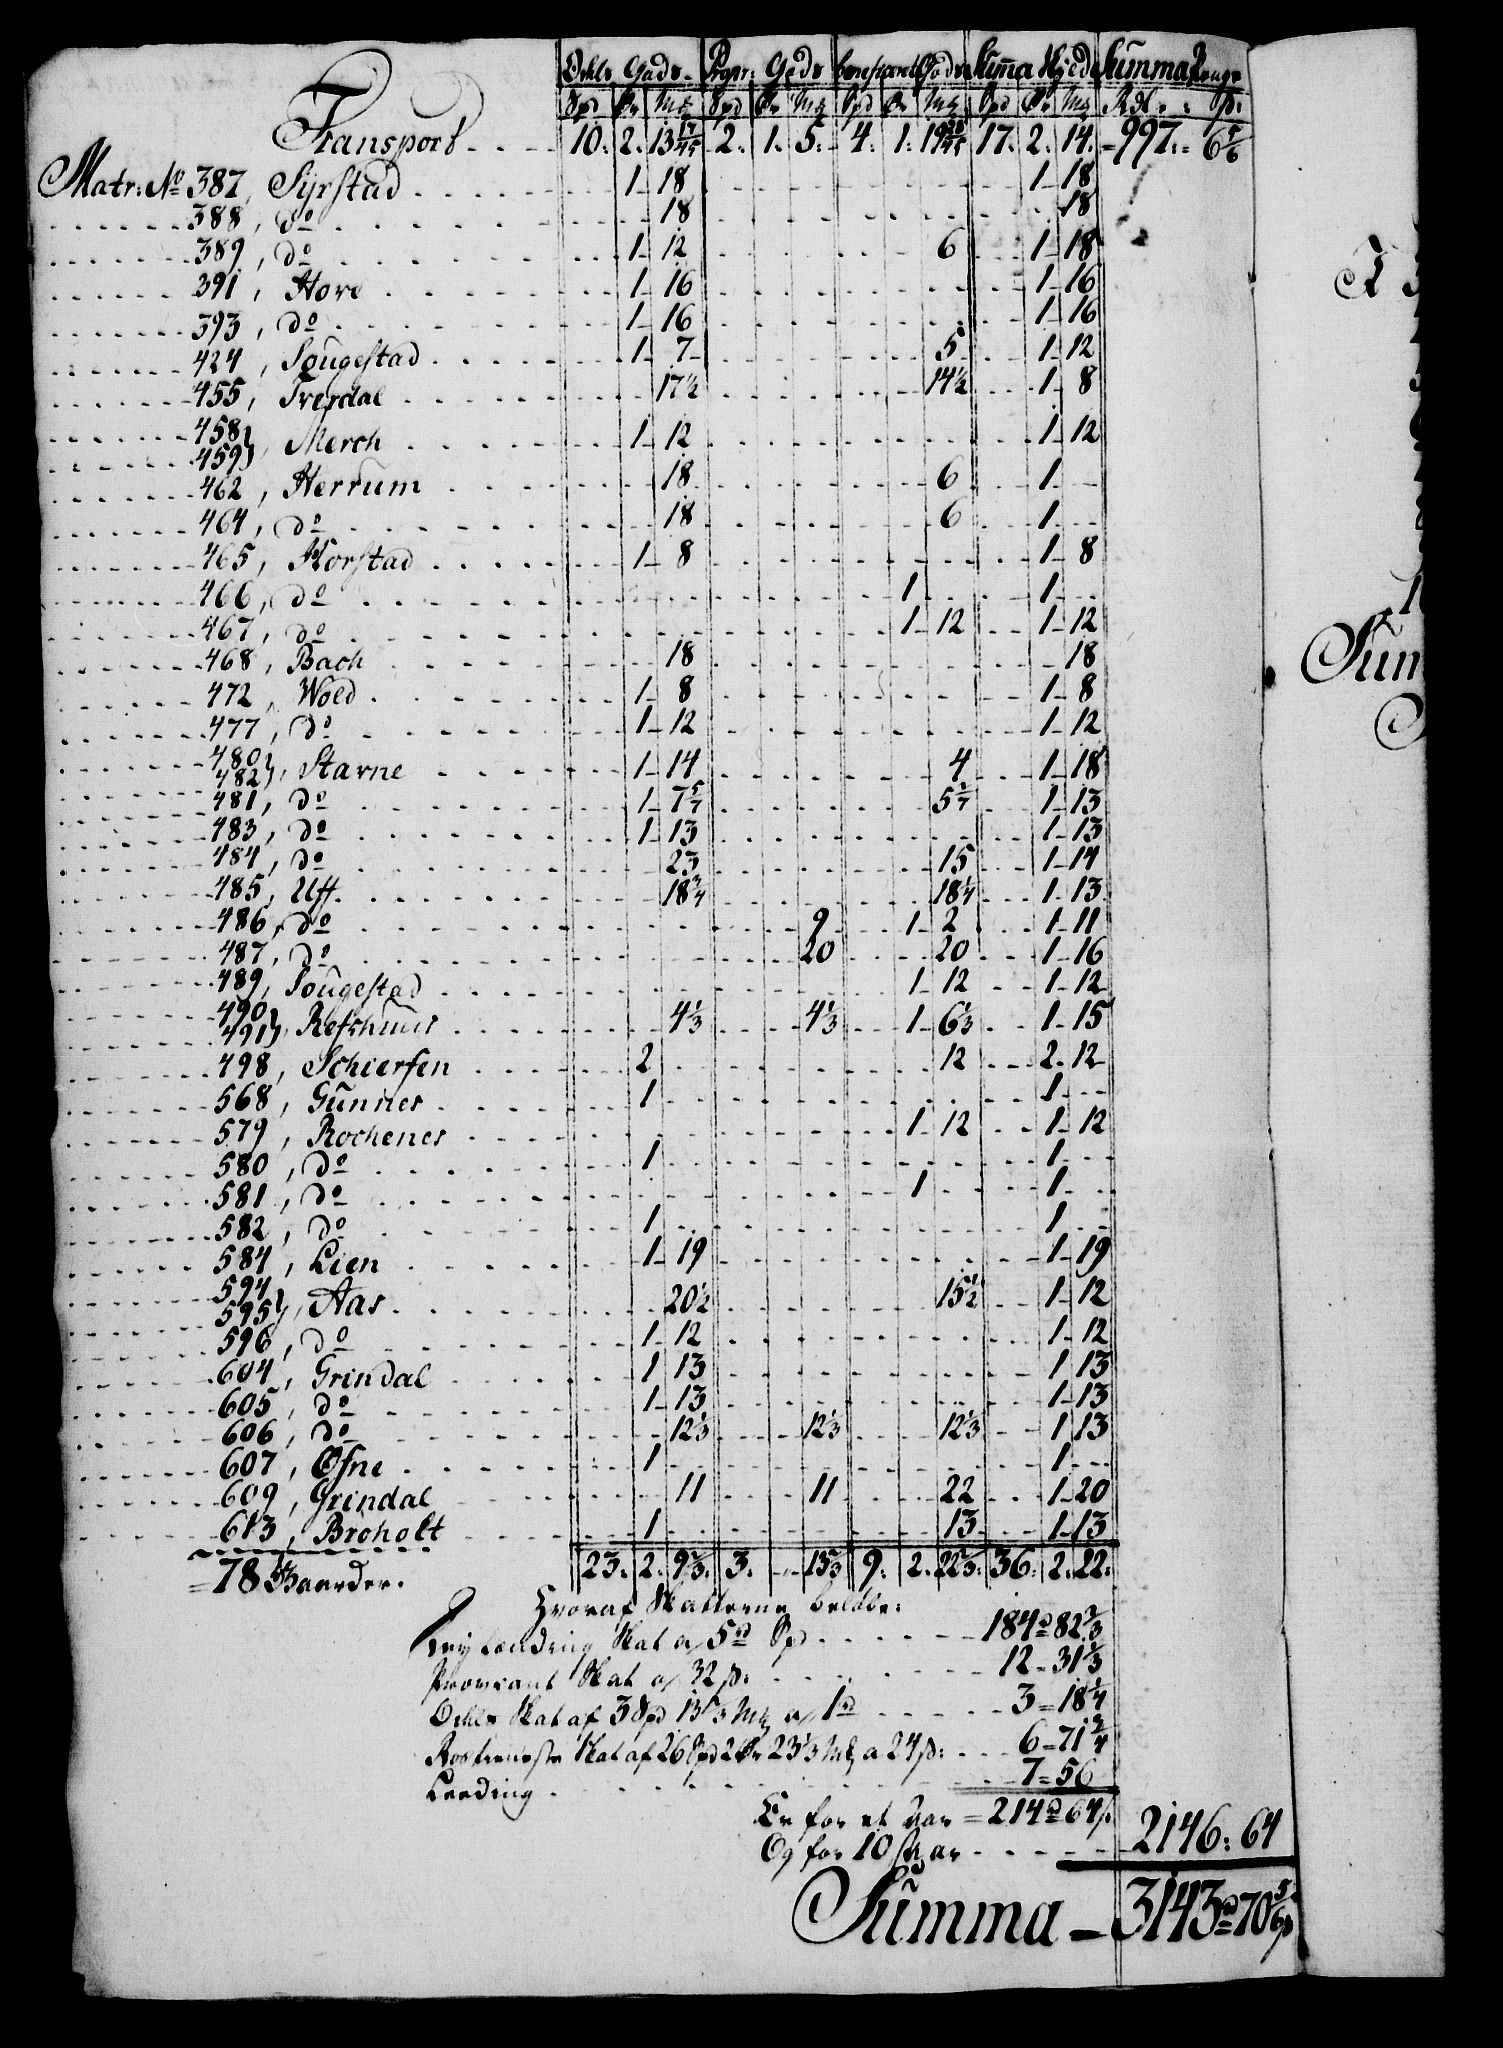 Odels Gods - Propr: Gods beneficeret Gods Summa Hyld Summa Penge
Spd Ør Mk Spd Ør Mk Spd Ør Mk Spd Ør Mk Rdlr: ß:
Transport . . . . 10. 2. 13 17/45 2. 1. 5. 4. 1. 19 28/45 17. 2. 14. 997. 6 5/6
Matr: No 387, Syrstad 1 18 1 18
388, do 18 18
389, do 1 12 6 1 18
391, Hove 1 16 1 16
393, do 1 16 1 16
424, Sougestad 1 7 5 1 12
455, Tresdal 17 1/2 14 1/2 1 8
458
459 Merch 1 12 1 12
462, Herrum 18 6 1
464, do 18 6 1
465, Korstad 1 8 1 8
466, do 1 1
467, do 1 12 1 12
468, Bach 18 18
472, Wold 1 8 1 8
477, do 1 12 1 12
480
482, Starne 1 14 4 1 18
481, do 1 7 5/7 5 2/7 1 13
483, do 1 13 1 13
484, do 23 15 1 14
485, Uff 18 3/4 18 1/4 1 13
486, do 9 1 2 1 11
487, do 20 20 1 16
489, Sougestad 1 12 1 12
490
491, Refshuus 4 1/3 4 1/3 1 6 1/3 1 15
498, Schierfen 2 12 2 12
568, Gunnes 1 1
579, Rochenes 1 12 1 12
580, do 1 1
581, do 1 1
582, do 1 1
584, Lien 1 19 1 19
594
595, Aas 20 1/2 15 1/2 1 12
596, do 1 12 1 12
604, Grindal 1 13 1 13
605, do 1 13 1 13
606, do 12 1/3 12 1/3 12 1/3 1 13
607, Øfne 1 1
609, Grindal 11 11 22 1 20
613, Broholt 1 13 1 13
78 Gaarder. 23. 2. 9 2/3. 3. 13 2/3 9. 2. 22 2/3. 36. 2. 22.
Hvoraf Skatterne beløbe:
Skat a 5 rd Spd 184 rd 82 2/3
Proviant Skat a 32 ß: 12 = 31 1/3
Odels Skat af 3 Spd 13 2/3 Mk a 1 rd 3 = 18 1/4
Rostieneste Skat af 26 Spd 2 Ør 23 1/3 Mk a 24 ß: 6 = 71 3/4
Leeding 7 = 56
Er for et Aar = 214 rd 64 ß.
Og for 10 Aar 2146: 64
Summa 3143 rd 70 5/6 ß
Sum